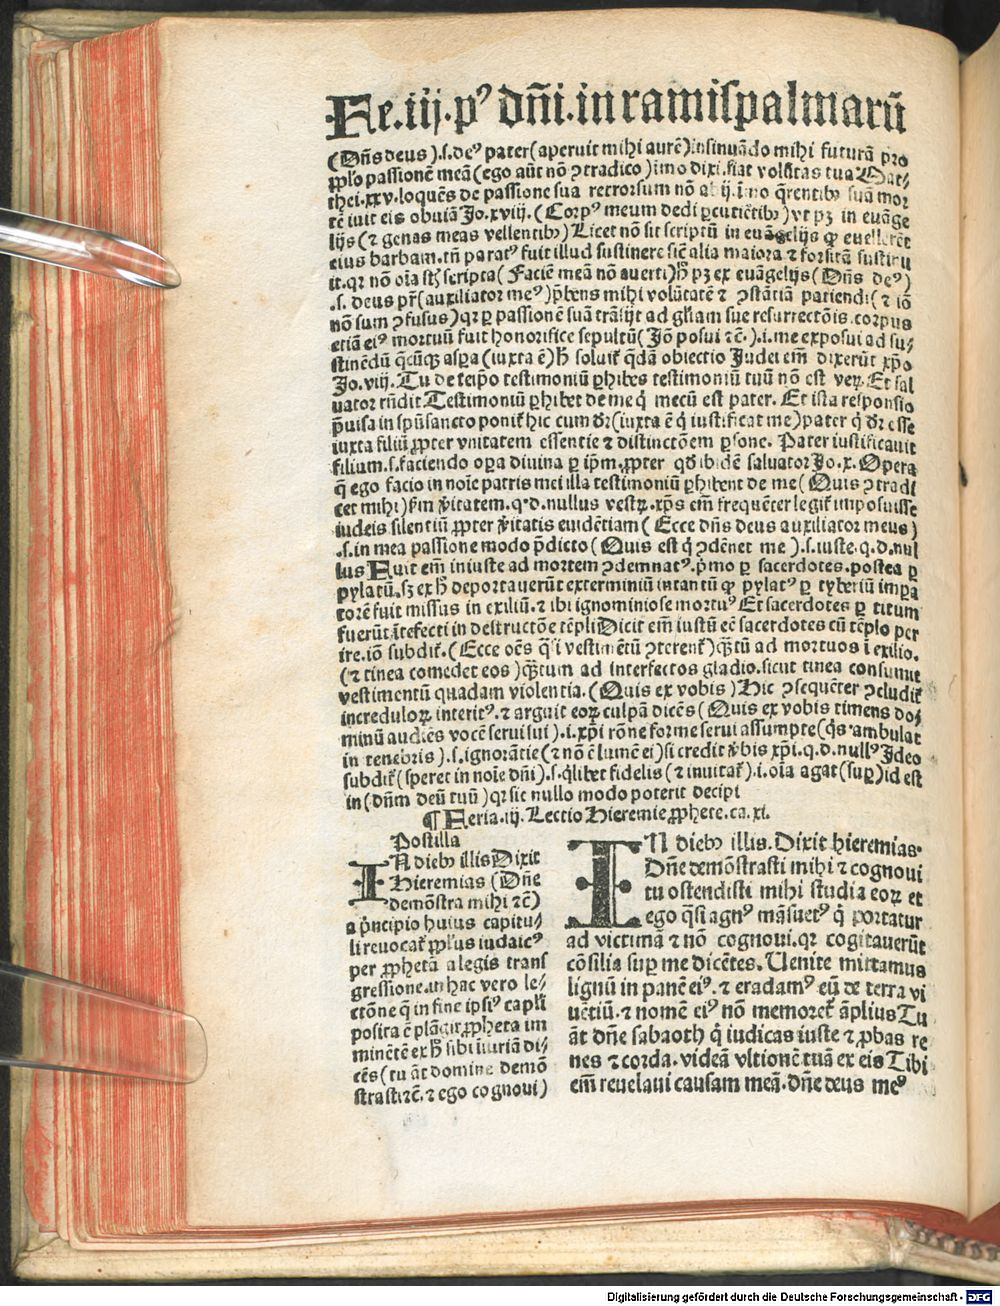 Fe.iij.pꝰ dñi.in ramispalmarũ
(Dñs deus).s.deꝰ pater(aperuit mihi aurẽ)insinuãdo mihi futurã pro
ꝓl'o passionẽ meã(ego aũt nõ ↄtradico)imo dixi.fiat volũtas tua Mat⸗
thei.xxv.loquẽs de passione sua retrorsum nõ abij.imo q̃rentibꝫ suã mor
tẽ iuit eis obuiã Jo.xviij.(Corpꝰ meum dedi ꝑcutiẽtibꝫ)vt pꝫ in euãge
lijs(⁊ genas meas vellentibꝫ)Licet nõ sit scriptũ in euãgelijs ꝙ euellerẽt
eius barbam.tñ paratꝰ fuit illud sustinere sic̃ alia maiora ⁊ forsitã sustinu
it.qr nõ oĩa st̃ scripta(Faciẽ meã nõ auerti)h̃ pꝫ ex euãgelijs(Dñs deꝰ)
.s.deus pr̃(auxiliator meꝰ)p̃bens mihi volũtatẽ ⁊ ↄstãtiã patiendi(⁊ iõ
nõ sum ↄfusus)qr ꝑ passionẽ suã trãsijt ad gl'iam sue resurrectõis.corpus
etiã eiꝰ mortuũ fuit honorifice sepultũ(Jõ posui ⁊c̃.).i.me exposui ad su⸗
stinẽdũ q̃cũqꝫ aspa(iuxta ẽ)h̃ soluit᷑ q̃dã obiectio Judei em̃ dixerũt xp̃o
Jo.viij.Tu de teipo testimoniũ ꝑhibes testimoniũ tuũ nõ est veꝝ.Et sal
uator rñdit Testimoniũ ꝑhibet de me q̇ mecũ est pater. Et ista responsio
p̃uisa in spũsancto ponit᷑ hic cum dr̃(iuxta ẽ q̇ iustificat me)pater q̇ dr̃ esse
iuxta filiũ ꝓpter vnitatem essentie ⁊ distinctõem ꝑsone. Pater iustificauit
filium.s.faciendo oꝑa diuina ꝑ ip̃m.ꝓpter qd̃ ibidẽ saluator Jo.x.Opera
q̃ ego facio in noie patris mei illa testimoniũ ꝑhibent de me(Quis ↄtradi
cet mihi)s̃m v̾itatem.q.d.nullus vestꝝ.xp̃s em̃ frequẽter legit᷑ imposuisse
iudeis silentiũ ꝓpter v̾itatis euidẽtiam(Ecce dñs deus auxiliator meus)
.s.in mea passione modo p̃dicto(Quis est q̇ ↄdẽnet me).s.iuste.q.d.nul
lus Fuit em̃ iniuste ad mortem ↄdemnatꝰ.p̾mo ꝑ sacerdotes.postea ꝑ
pylatũ.sꝫ ex h̃ deportauerũt exterminiũ intantũ ꝙ pylatꝰ ꝑ tyberiũ impa
torẽ fuit missus in exiliũ.⁊ ibi ignominiose mortuꝰ Et sacerdotes ꝑ titum
fuerũt ĩterfecti in destructõe tẽpli Dicit em̃ iustũ eẽ sacerdotes cũ tẽplo per
ire.iõ subdit᷑.(Ecce oẽs q̃si vestimẽtũ ↄterent᷑)q̃tũ ad mortuos ĩ exilio.
(⁊ tinea comedet eos)q̃tum ad interfectos gladio.sicut tinea consumit
vestimentũ quadam violentia.(Quis ex vobis)Hic ↄsequẽter ↄcludit᷑
increduloꝝ interitꝰ.⁊ arguit eoꝝ culpã dicẽs(Quis ex vobis timens do⸗
minũ audiẽs vocẽ serui sui).i.xp̃i rõne forme serui assumpte(q̇s ambulat
in tenebris).s.ignorãtie(⁊ nõ ẽ lumẽ ei)si credit v̾bis xp̃i.q.d.nullꝰ Jdeo
subdit᷑(speret in noie dñi).s.q̇libet fidelis(⁊ inuitat᷑).i.oĩa agat(suꝑ)id est
in(dñm deũ tuũ)qr sic nullo modo poterit decipi
¶ Feria.iij.Lectio Hieremie ꝓphete.ca.xi.
Postilla
IN diebꝫ illis Dixit
Hieremias(Dñe
demõstra mihi ⁊c̃)
a p̾ncipio huius capitu⸗
li reuocat᷑ ꝓl'us iudaicꝰ
per ꝓphetã a legis trans
gressione.in hac vero le⸗
ctõne q̃ in fine ipsiꝰ capli
posita ẽ plãgit ꝓpheta im
minẽtẽ ex h̃ sibi iniuriã di⸗
cẽs(tu aũt domine demõ
strasti ⁊c̃.⁊ ego cognoui)
IN diebꝫ illis.Dixit hieremias.
Dñe demõstrasti mihi ⁊ cognoui
tu ostendisti mihi studia eoꝝ et
ego q̃si agnꝰ mãsuetꝰ q̇ portatur
ad victimã ⁊ nõ cognoui.qr cogitauerũt
cõsilia suꝑ me dicẽtes.Uenite mittamus
lignũ in panẽ eiꝰ.⁊ eradamꝰ eũ de terra vi
uẽtiũ.⁊ nomẽ eiꝰ nõ memoret᷑ ãplius Tu
ãt dñe sabaoth q̇ iudicas iuste ⁊ ꝓbas re
nes ⁊ corda.videã vltionẽ tuã ex eis Tibi
em̃ reuelaui causam meã.dñe deus meꝰ
Digitalisierung gefördert durch die Deutsche Forschungsgemeinschaft - DFG